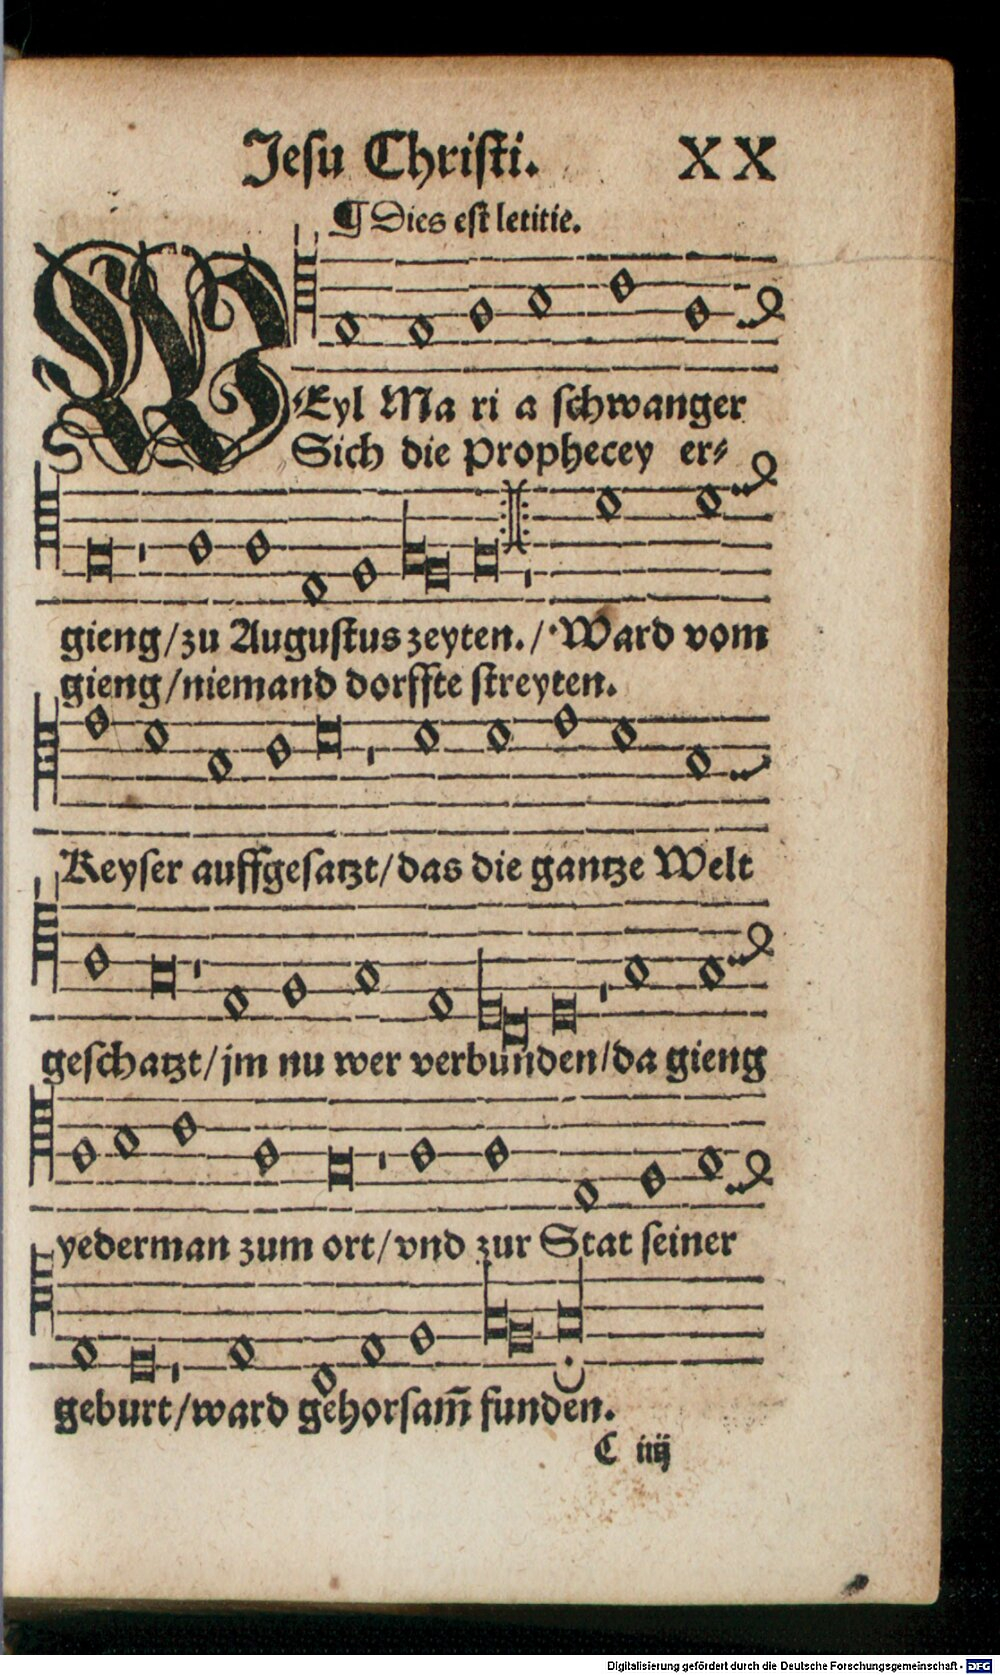 Jesu Christi. XX
¶ Dies est letitie.
WEyl Ma ri a schwanger
Sich die Prophecey er⸗
gieng/zu Augustus zeyten./ Ward vom
gieng/niemand dorffte streyten.
Keyser auffgesatzt/das die gantze Welt
geschatzt/jm nu wer verbunden/da gieng
yederman zum ort/vnd zur Stat seiner
geburt/ward gehorsam̃ funden.
C iiij
Digitalisierung gefördert durch die Deutsche Forschungsgemeinschaft - DFG